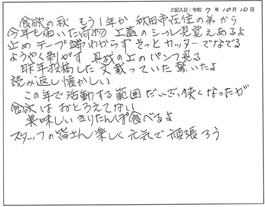 ご記入日:令和 7 年 10 月 10 日
食欲の秋 もう1年か 秋田市在住の弟から
今年も届いた荷物 上蓋のシール見覚えあるよ
止めテープ跡わからず そっとカッターでなでる
ようやく剥がす 具材の上のパンフ見る
昨年投稿した文載っていた驚いたよ
読み返し懐かしい
この年で活動する範囲だいぶ狭くなったが
食欲はおとろえてない
美味しいきりたんぽ食べるよ
スタッフの皆さん楽しく元気で頑張ろう